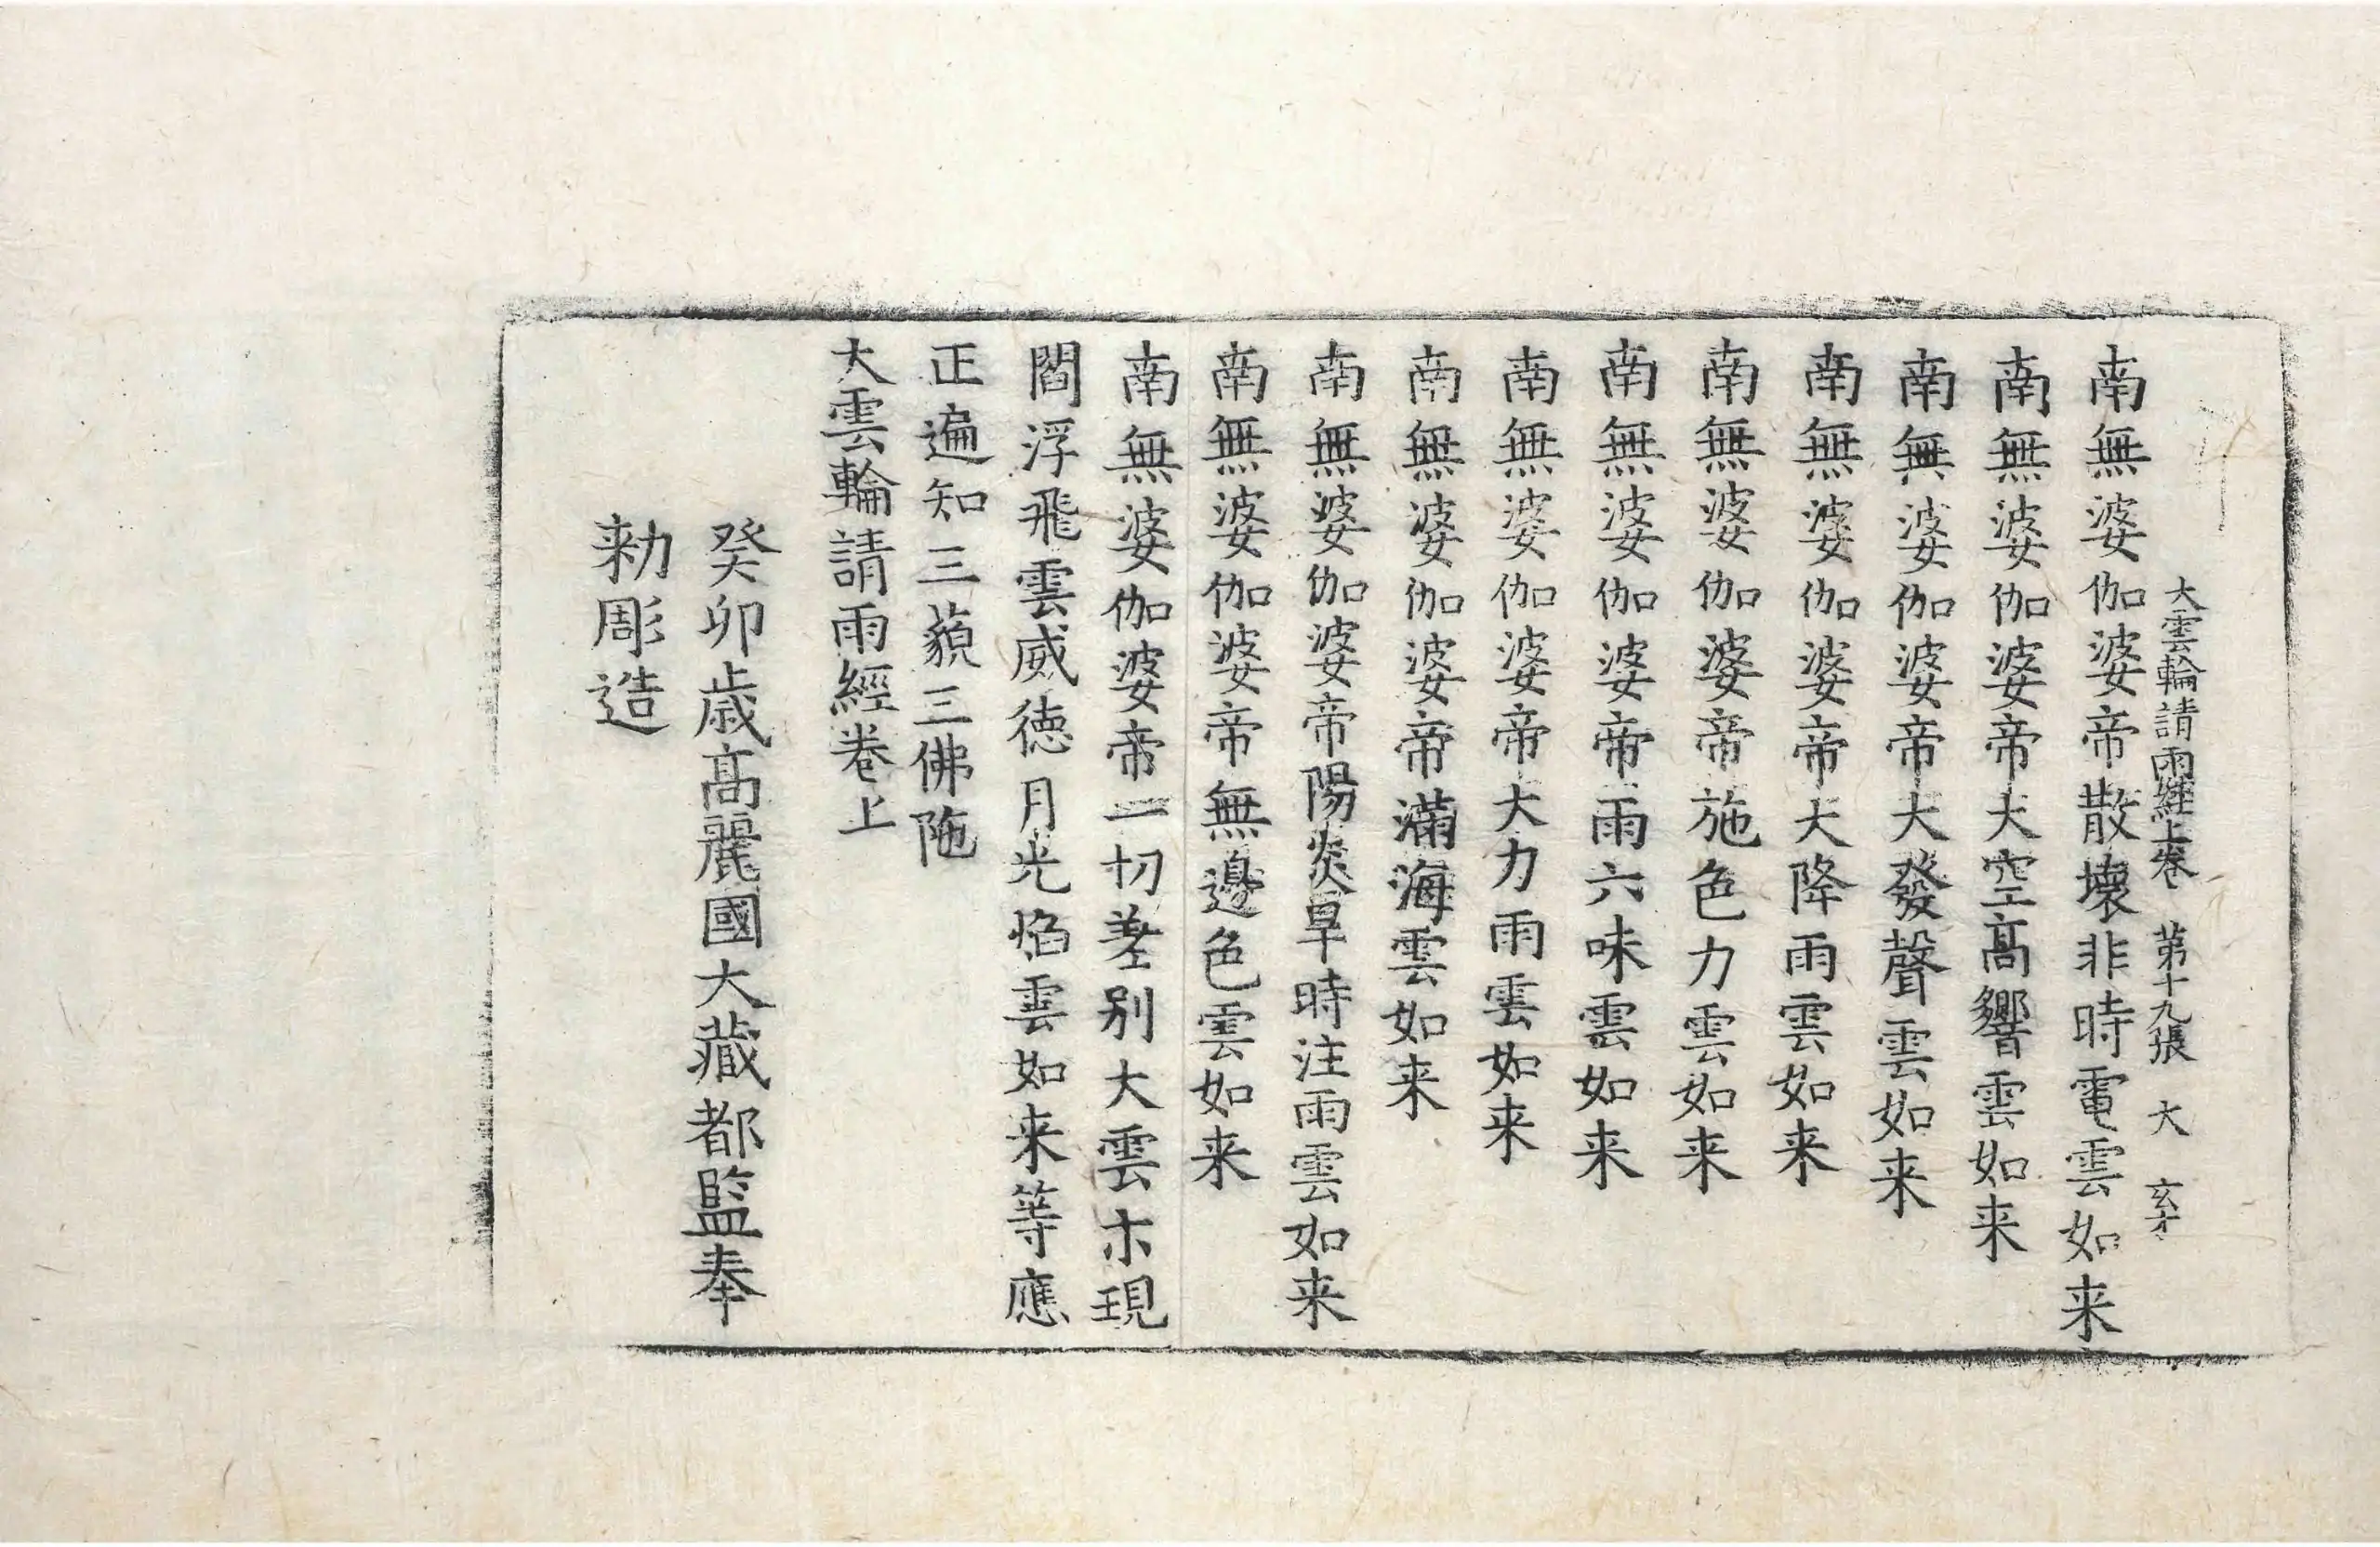 大雲輪請雨経上卷 第十九張 大 玄才
南無婆伽婆帝散壊非時電雲如来
南無婆伽婆帝大空髙響雲如来
南無婆伽婆帝大發聲雲如来
南無婆伽婆帝大降雨雲如来
南無婆伽婆帝施色力雲如来
南無婆伽婆帝雨六味雲如来
南無婆伽婆帝大力雨雲如来
南無婆伽婆帝滿海雲如来
南無婆伽婆帝陽炎旱時注雨雲如来
南無婆伽婆帝無邊色雲如来
南無婆伽婆帝一切差别大雲示現
閻浮飛雲威德月光焰雲如来等應
正遍知三藐三佛陁
大雲輪請雨經卷上
癸卯歳髙麗國大藏都監奉
勑彫造